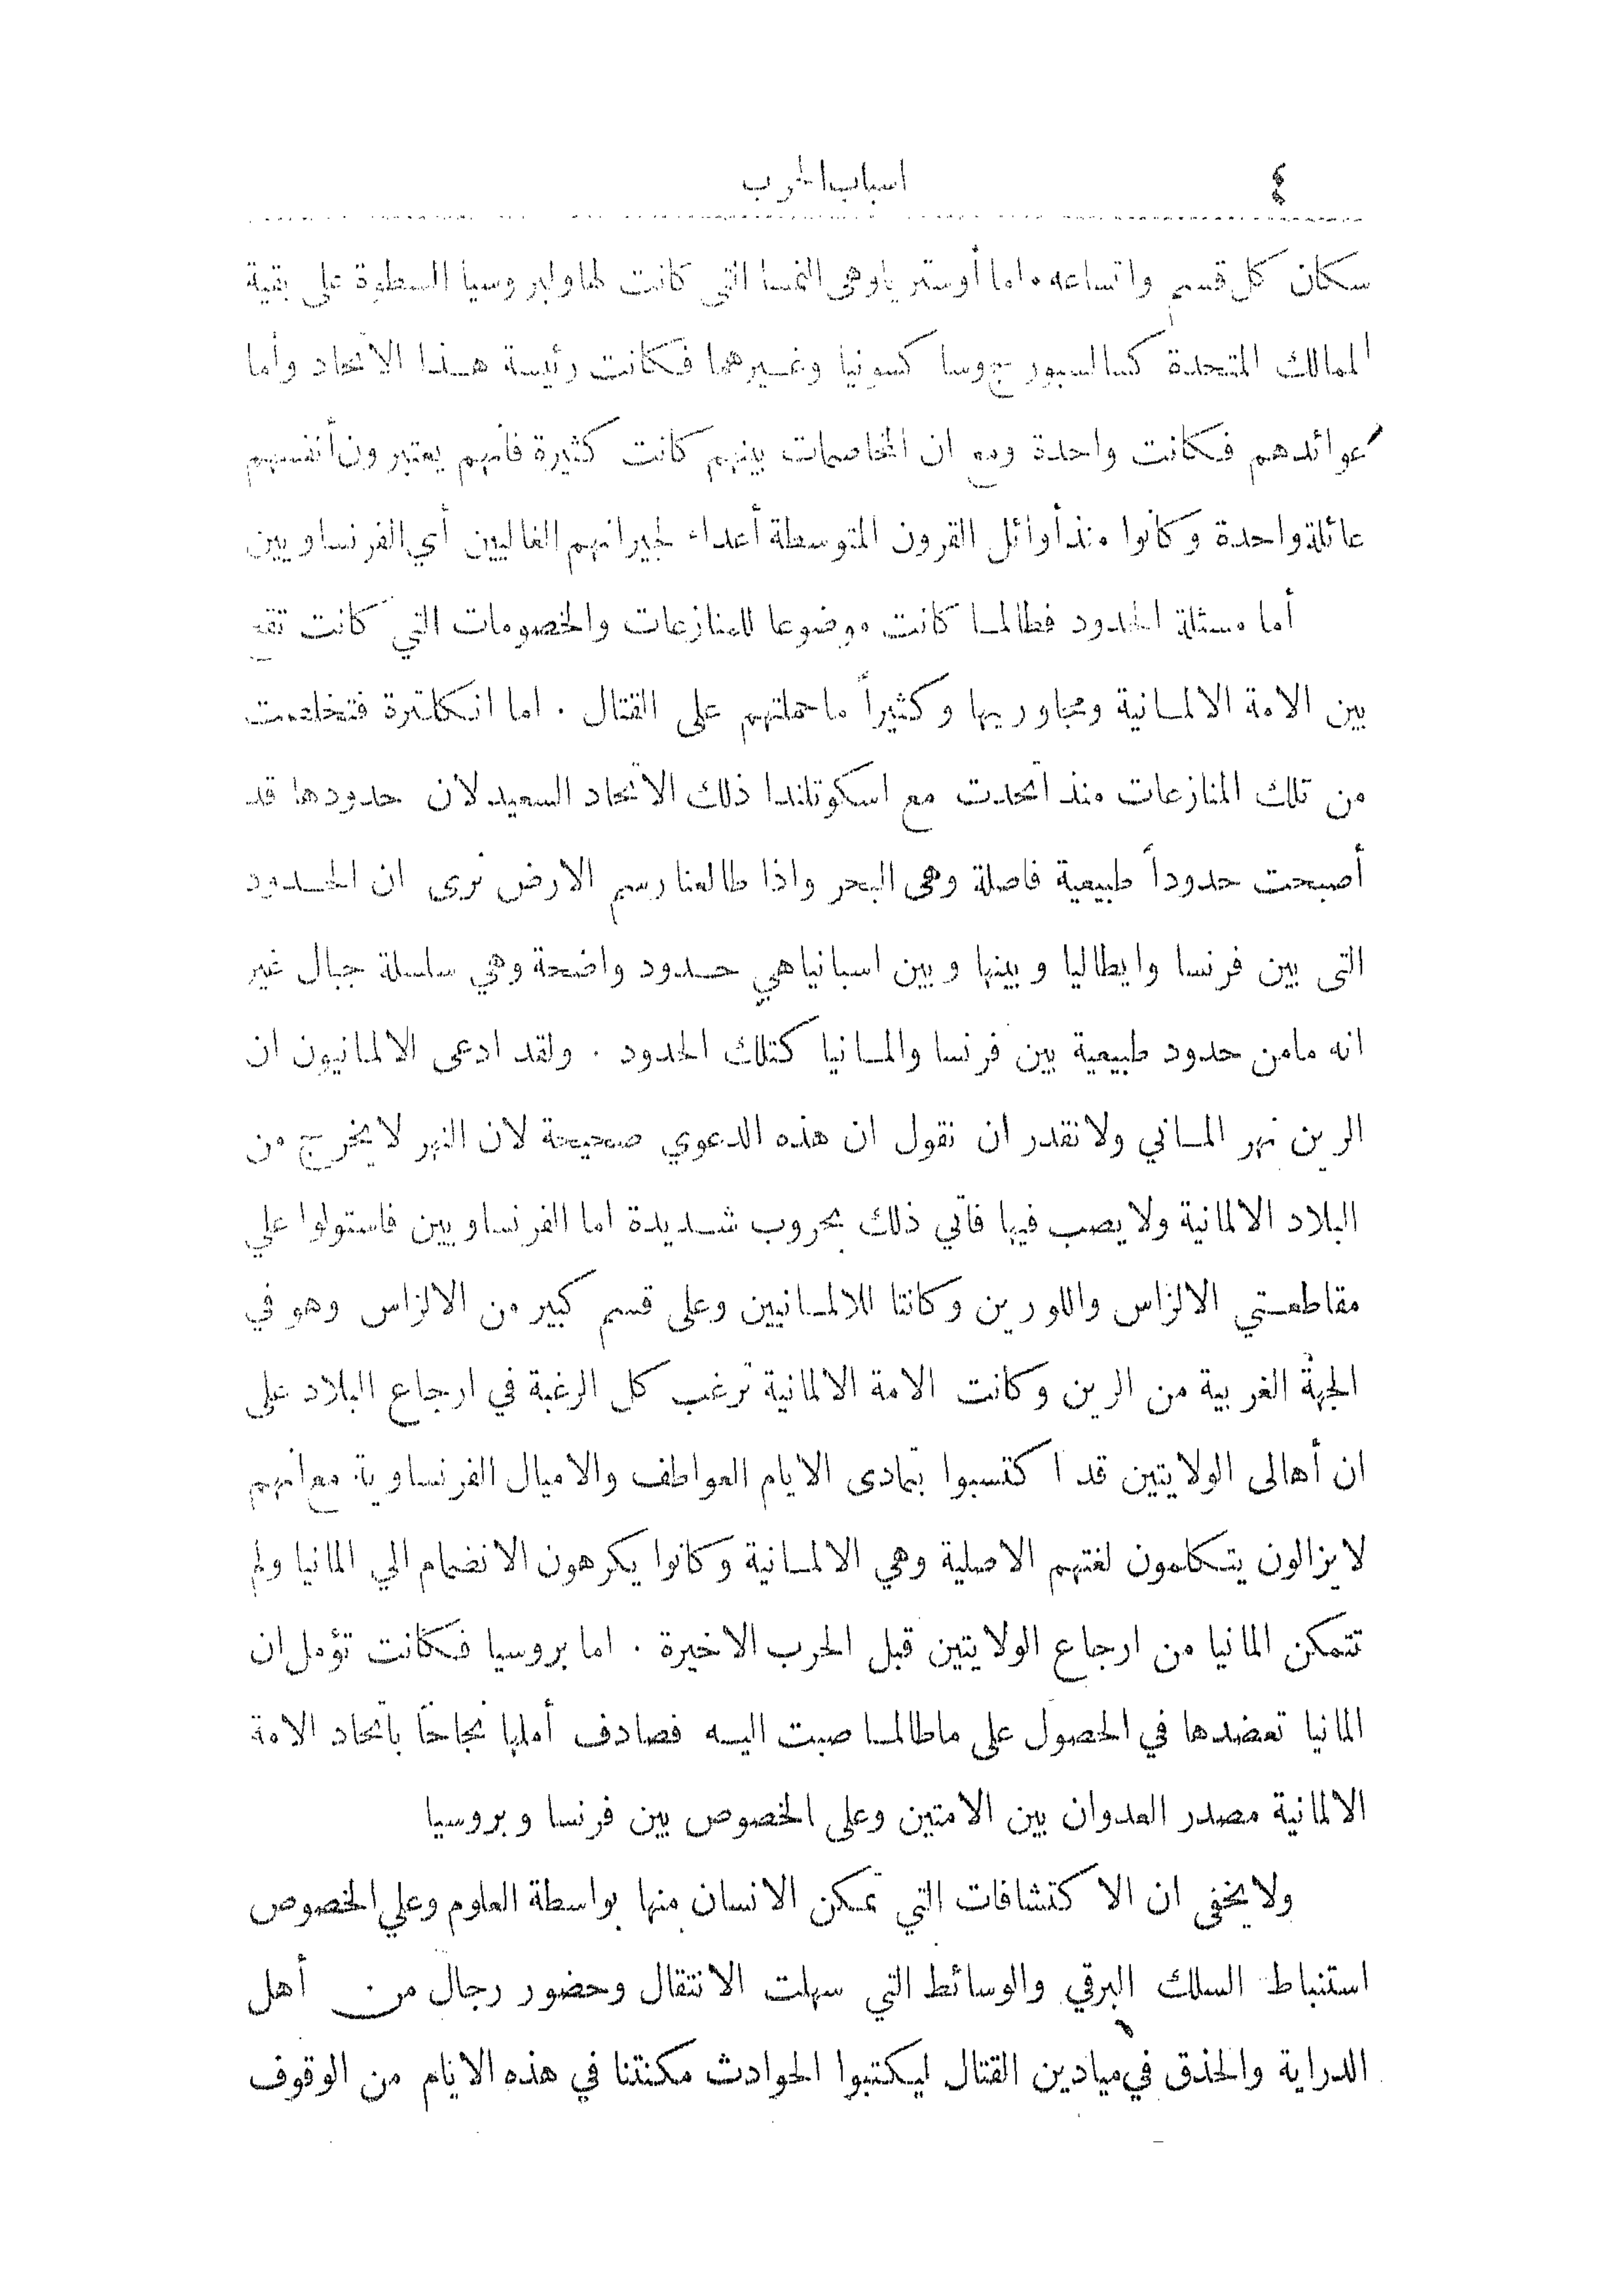 ٤ اسباب الحرب
سكان كل قسم واتساعه . اما أوستريا وهى النمسا التي كانت لها ولبروسيا السطوة على بقية
الممالك المتحدة كسالسبورج وسا كسونيا وغيرهما فكانت رئيسة هذا الاتحاد وأما
عوائدهم فكانت واحدة ومع ان المخاصمات بينهم كانت كثيرة فانهم يعتبرون أنفسهم
عائلة واحدة وكانوا منذ أوائل القرون المتوسطة أعداء لجيرانهم الغاليين أي الفرنساويين
أما مسئلة الحدود فطالما كانت موضوعا للمنازعات والخصومات التي كانت تقع
بين الامة الالمانية ومجاوريها وكثيراً ما حملتهم على القتال . اما انكلترة فتخلصت
من تلك المنازعات منذ اتحدت مع اسكوتلندا ذلك الاتحاد السعيد لان حدودها قد
أصبحت حدوداً طبيعية فاصلة وهى البحر واذا طالعنا رسم الارض نرى ان الحدود
التى بين فرنسا وايطاليا وبينها وبين اسبانيا هي حدود واضحة وهي سلسلة جبال غير
انه ما من حدود طبيعية بين فرنسا والمانيا كتلك الحدود . ولقد ادعى الالمانيون ان
الرين نهر الماني ولا نقدر ان نقول ان هذه الدعوي صحيحة لان النهر لا يخرج من
البلاد الالمانية ولا يصب فيها فاتي ذلك بحروب شديدة اما الفرنساويين فاستولوا علي
مقاطعتي الالزاس واللورين وكانتا للالمانيين وعلى قسم كبير من الالزاس وهو في
الجهة الغربية من الرين وكانت الامة الالمانية ترغب كل الرغبة في ارجاع البلاد على
ان أهالى الولايتين قد ا كتسبوا بتمادى الايام العواطف والاميال الفرنساوية مع انهم
لا يزالون يتكلمون لغتهم الاصلية وهي الالمانية وكانوا يكرهون الانضمام الي المانيا ولم
تتمكن المانيا من ارجاع الولايتين قبل الحرب الاخيرة . اما بروسيا فكانت تؤمل ان
المانيا تعضدها في الحصول على ما طالما صبت اليه فصادف أملها نجاحا باتحاد الامة
الالمانية مصدر العدوان بين الامتين وعلى الخصوص بين فرنسا وبروسيا
ولا يخفى ان الا كتشافات التي تمكن الانسان منها بواسطة العلوم وعلي الخصوص
استنباط السلك البرقي والوسائط التي سهلت الانتقال وحضور رجال من أهل
الدراية والحذق في ميادين القتال ليكتبوا الحوادث مكنتنا في هذه الايام من الوقوف